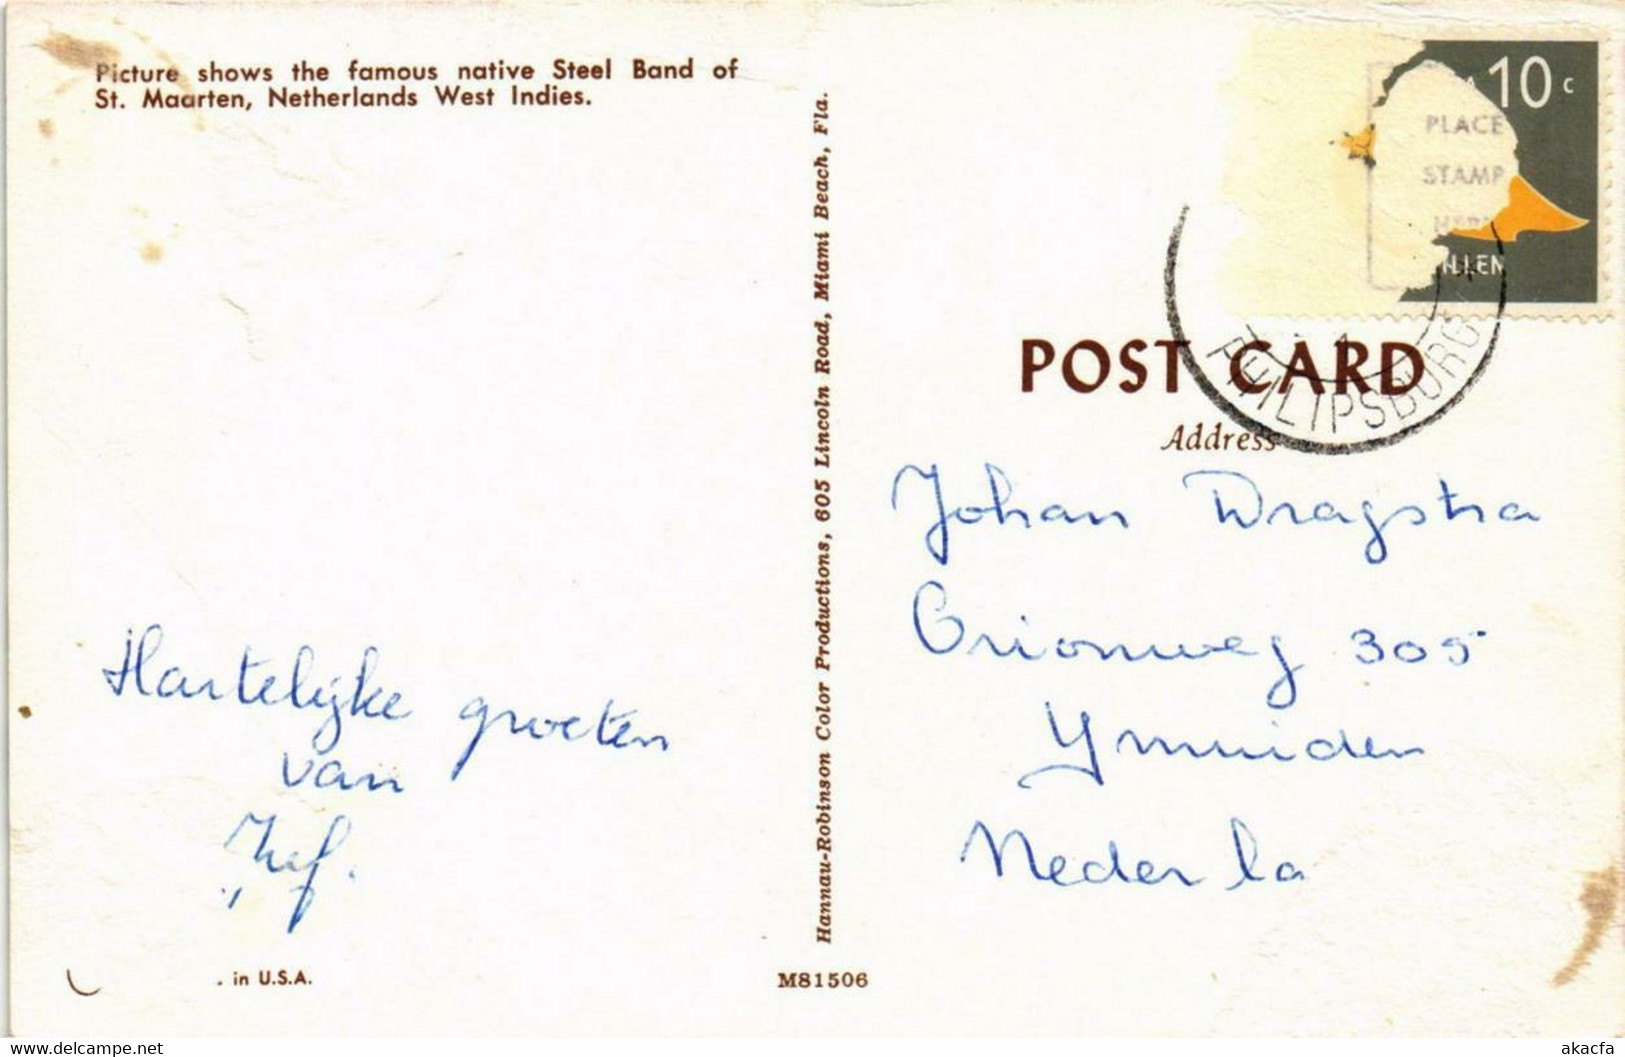 Picture shows the famous native Steel Band of
St. Maarten, Netherlands West Indies.
Hartelijke groeten
van
. in U.S.A.
Hannau-Robinson Color Productions, 605 Lincoln Road, Miami Beach, Fla.
M81506
10 c
PLACE
STAMP
HERE
LLEN
PHILIPSBURG
POST CARD
Address
Johan Dragstra
Orionweg 305
Ymuiden
Nederla
akacfa
https://www.delcampe.net